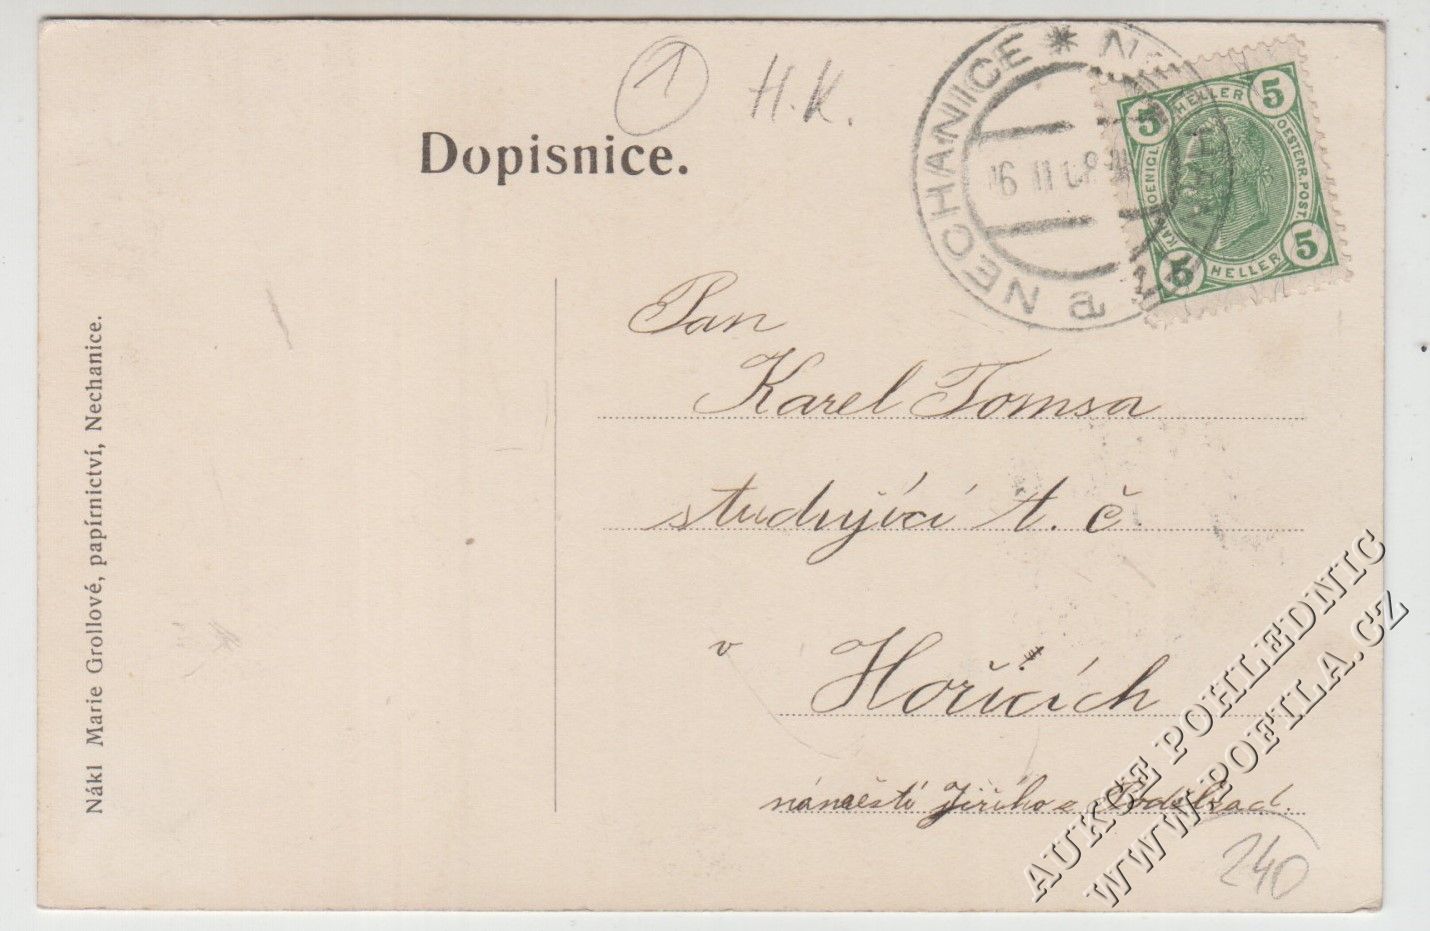 1
H.K.
Dopisnice.
NECHANICE * NECHANITZ a
16 II 08
5 HELLER 5
OESTERR.POST.
5 HELLER 5
Pan
Karel Tomsa
studující t. č
v Hořicích
náměstí Jiřího z Poděbrad.
240
Nákl Marie Grollové, papírnictví, Nechanice.
AUKCE POHLEDNIC
WWW.POFILA.CZ